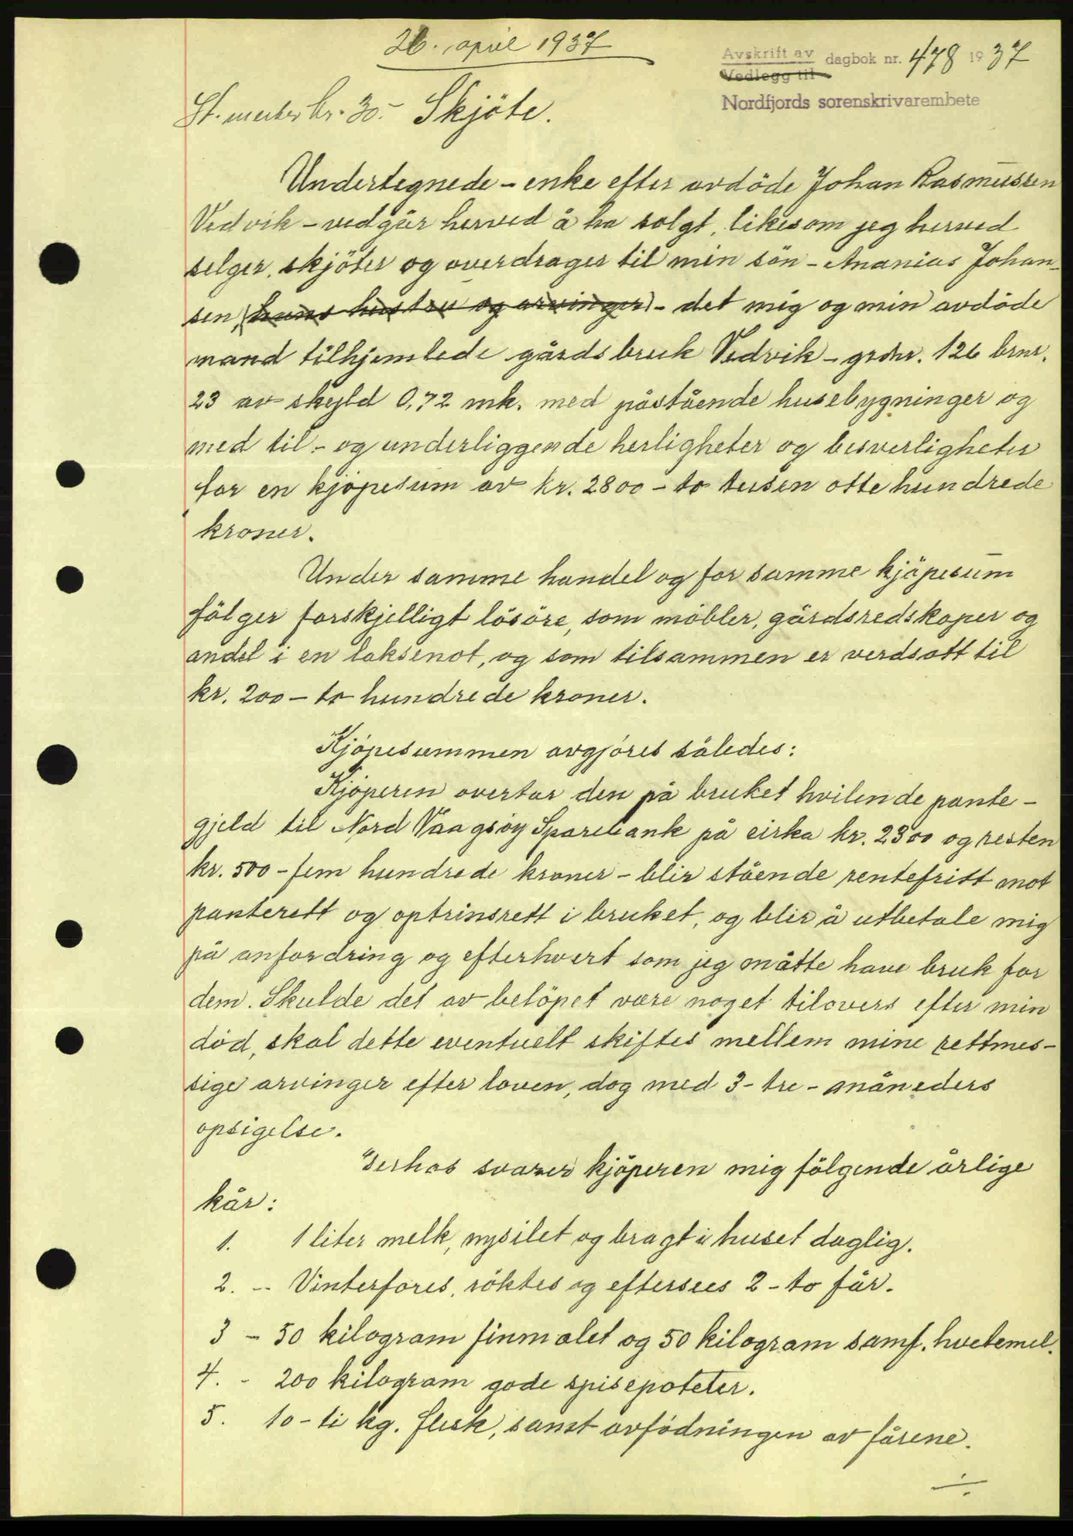 26. april 1937
Avskrift av
Vedlegg til
dagbok nr. 478 1937
Nordfjords sorenskrivarembete
St. merker kr. 30.- Skjöte.
Undertegnede - enke efter avdöde Johan Rasmussen
Vedvik - vedgår herved å ha solgt, likesom jeg herved
selger, skjöter og overdrager til min sön - Ananias Johan-
sen (hans hustru og arvinger) - det mig og min avdöde
mand tilhjemlede gårdsbruk Vedvik - grdnr. 126 brnr.
23 av skyld 0,72 mk. med påstående husebygninger og
med til - og underliggende herligheter og besverligheter
for en kjöpesum av kr. 2800 - to tusen otte hundrede
kroner.
Under samme handel og for samme kjöpesum
fölger forskjelligt lösöre, som möbler, gårdsredskaper og
andel i en laksenot, og som tilsammen er verdsatt til
kr. 200 - to hundrede kroner.
Kjöpesummen avgjöres således:
Kjöperen overtar den på bruket hvilende pante-
gjeld til Nord Vaagsöy Sparebank på cirka kr. 2300 og resten
kr. 500 - fem hundrede kroner - blir stående rentefritt mot
panterett og optrinsrett i bruket, og blir å utbetale mig
på anfordring og efterhvert som jeg måtte have bruk for
dem. Skulde det av belöpet være noget tilovers efter min
död, skal dette eventuelt skiftes mellem mine rettmes-
sige arvinger efter loven, dog med 3 - tre - måneders
opsigelse.
Derhos svarer kjöperen mig fölgende årlige
kår:
1. 1 liter melk, nysilet og bragt i huset daglig.
2. -- Vinterfores, röktes og eftersees 2 - to får.
3 - 50 kilogram finmalet og 50 kilogram samf. hvetemel.
4. - 200 kilogram gode spisepoteter.
5. 10 - ti kg. flesk, samt avfödningen av fårene.
./.